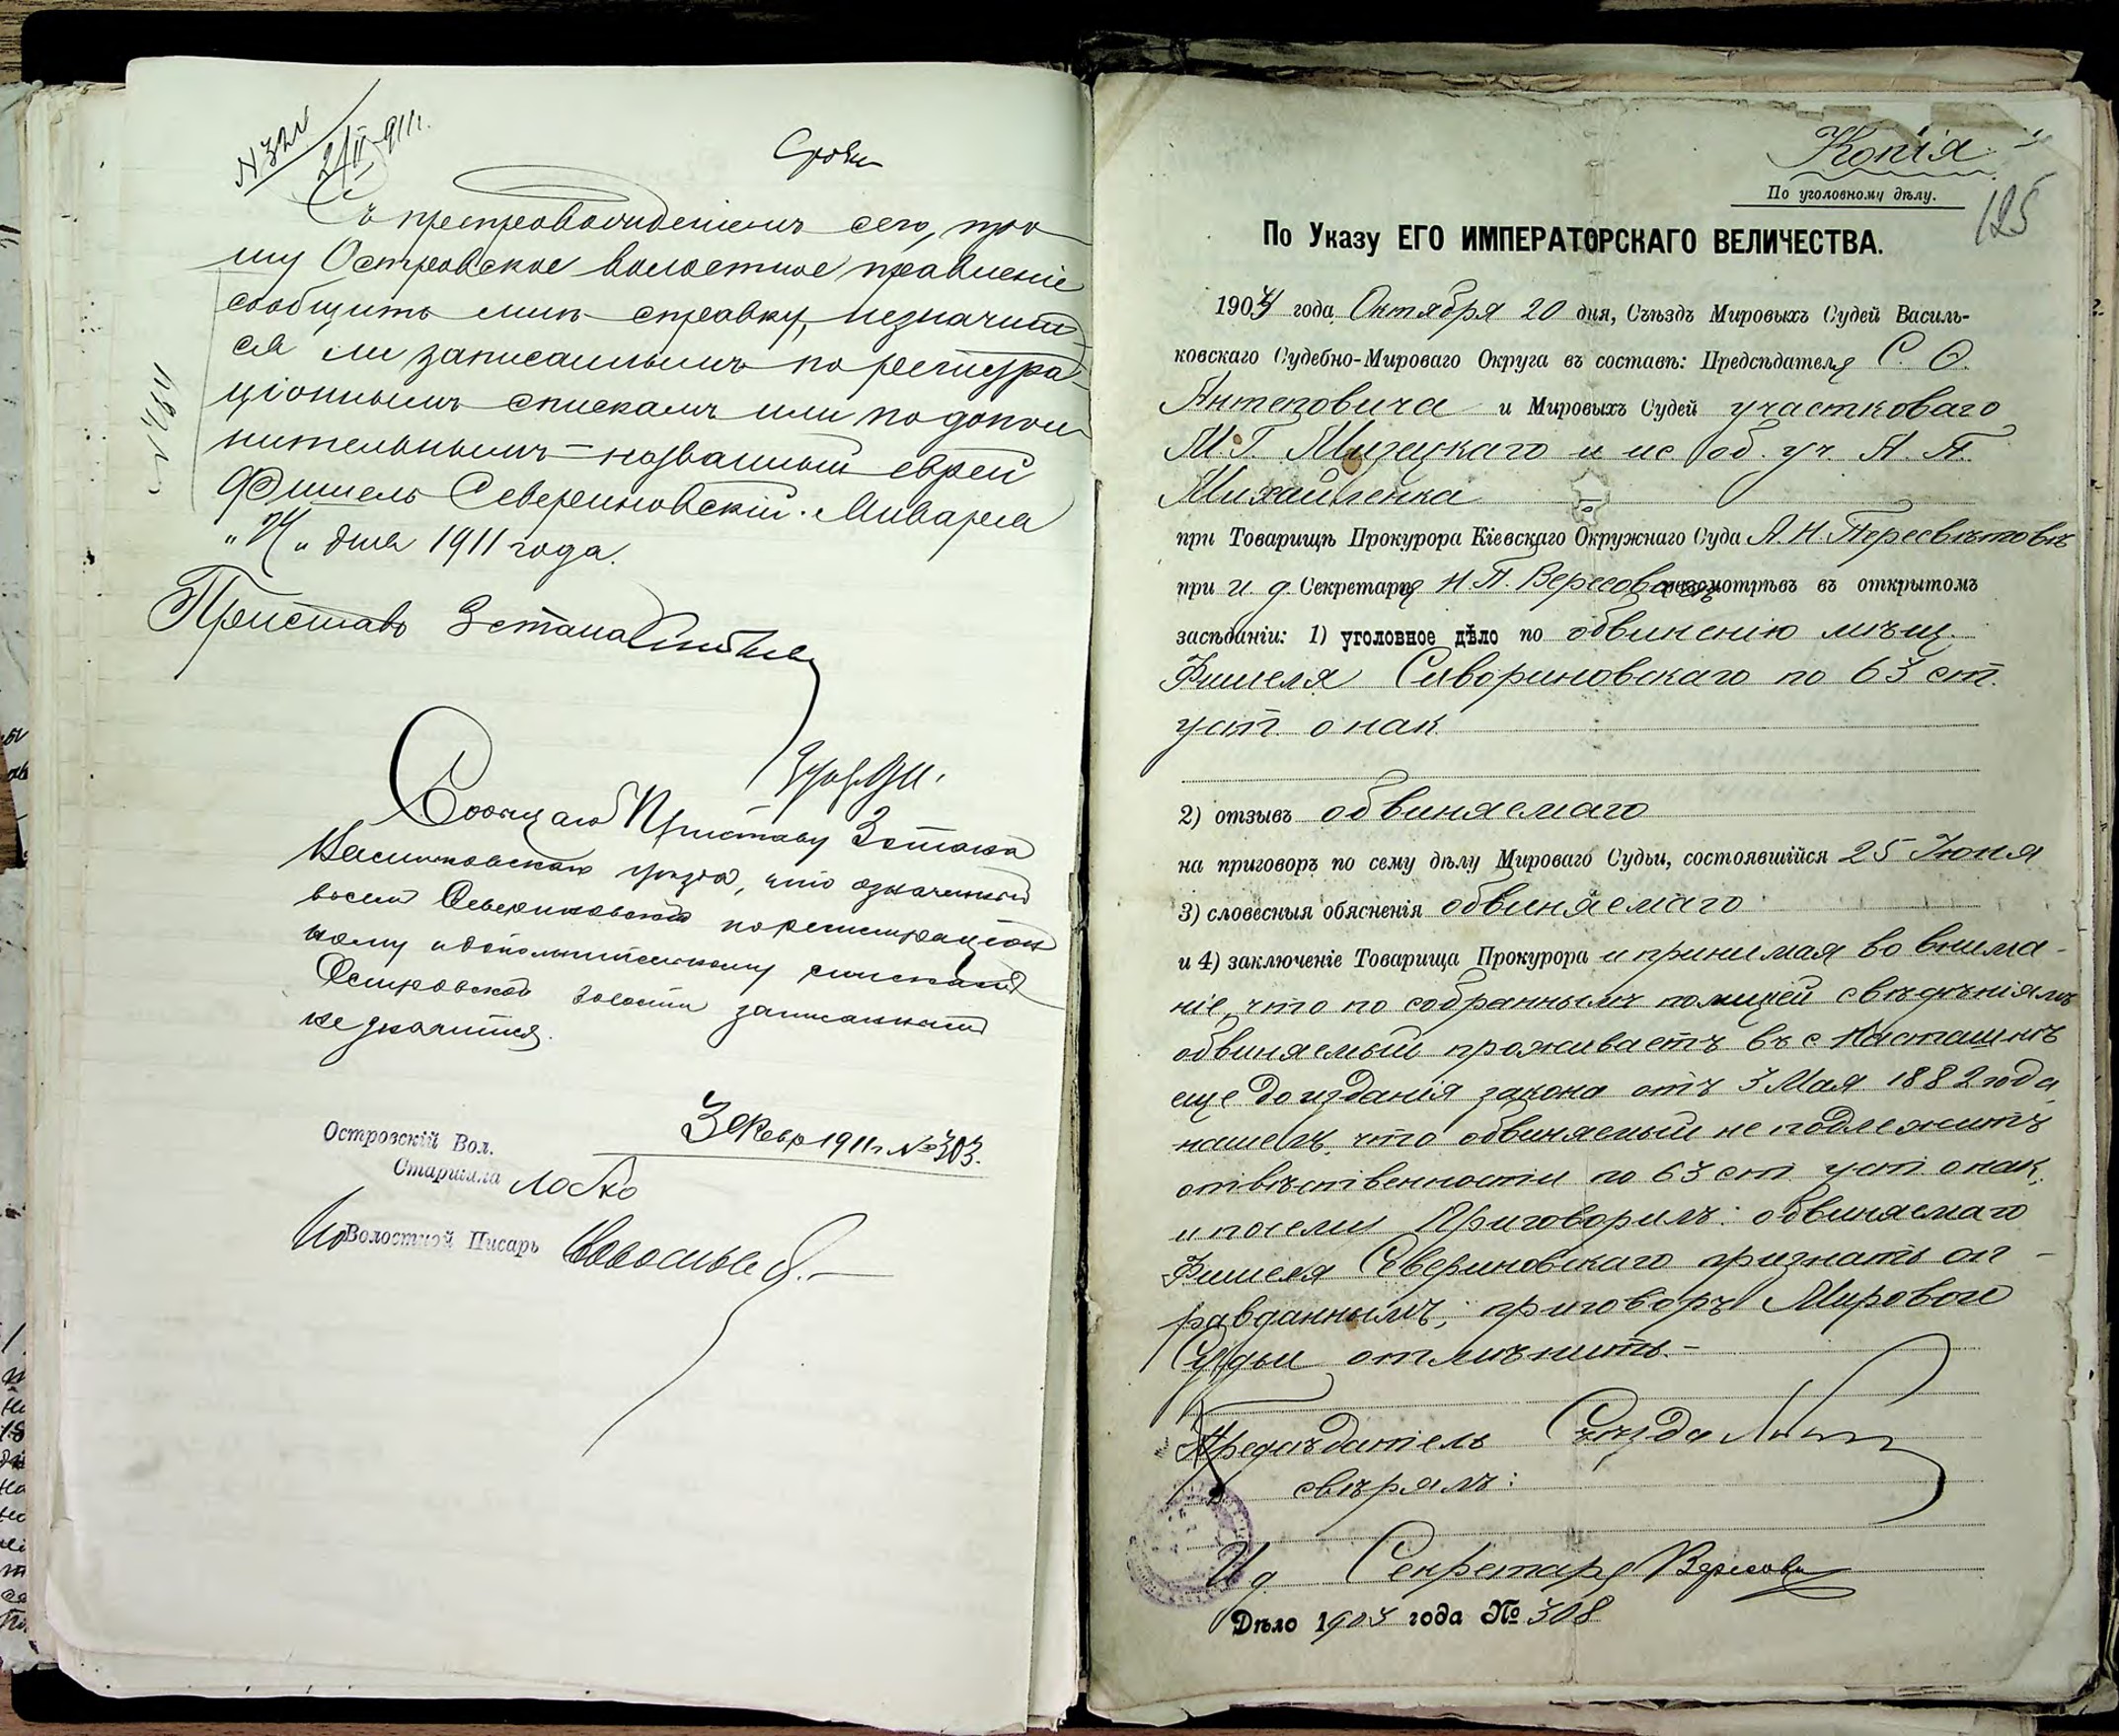 2/II 911 г.
Срочн
Съ препровожденіемъ сего, про-
шу Островское волостное правленіе
сообщить мнѣ справку, незначит-
ся ли записаннымъ по регистра-
ціоннымъ спискамъ или по допол-
нительнымъ – названный еврей
Фишель Севериновскій. Января
" " дня 1911 года.
Приставъ 3 стана
Сообщаю Приставу 3 стана
Васильковскаго уѣзда, что означенный
Севериновскій по регистраціон
ному и дополнительному спискамъ
Островской волости записаннымъ
не значится.
3 Февр 1911 г. № 303.
Островскій Вол.
Старшина Лобко
Волостной Писарь
Копія
По уголовному дѣлу.
125
По Указу ЕГО ИМПЕРАТОРСКАГО ВЕЛИЧЕСТВА.
1904 года Октября 20 дня, Съѣздъ Мировыхъ Судей Василь-
ковскаго Судебно-Мироваго Округа въ составѣ: Предсѣдателя С. О.
Антеповича и Мировыхъ Судей участковаго
М. Г. Мизецкаго и ис. об. уч. А. П.
Михайленка
при Товарищѣ Прокурора Кіевскаго Окружнаго Суда А. Н. Пересвѣтовѣ
при и. д. Секретаря Н. П. Вересовомъ разсмотрѣвъ въ открытомъ
засѣданіи: 1) уголовное дѣло по обвиненію мѣщ.
Фишеля Сивориновскаго по 63 ст.
уст. о нак.
2) отзывъ обвиняемаго
на приговоръ по сему дѣлу Мироваго Судьи, состоявшійся 25 Іюня
3) словесныя обясненія обвиняемаго
и 4) заключеніе Товарища Прокурора и принимая во внима-
ніе, что по собраннымъ полиціей свѣдѣніямъ
обвиняемый проживаетъ въ с Насташкѣ
еще до изданія закона отъ 3 Мая 1882 года,
нашелъ, что обвиняемый не подлежитъ
отвѣтственности по 63 ст уст о нак.
и посему Приговорилъ: обвиняемаго
Фишеля Севериновскаго признать оп-
равданнымъ; приговоръ Мирового
Судьи отмѣнить.–
Предсѣдатель Съѣзда
свѣрялъ:
И д. Секретаря Вересовъ
Дѣло 1903 года № 308